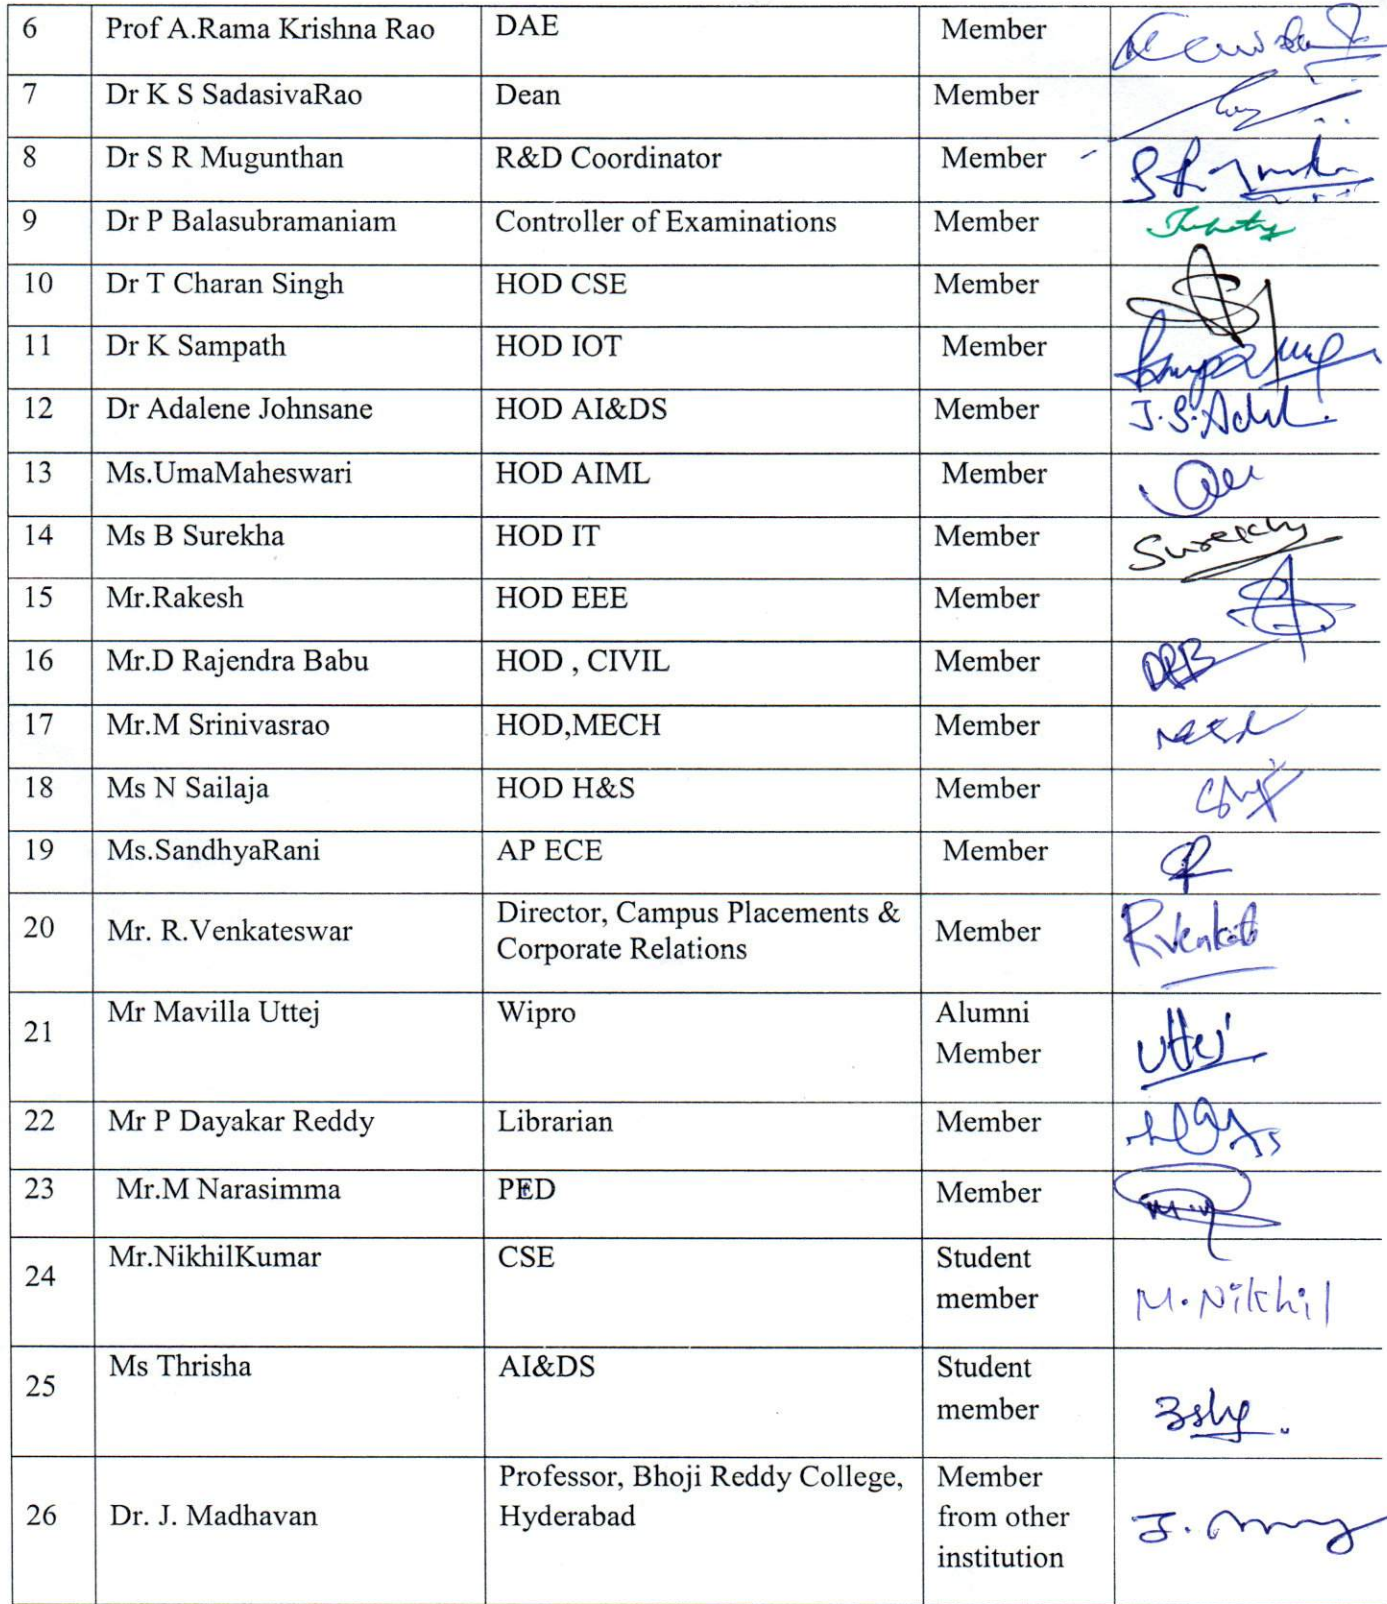 6 Prof A.Rama Krishna Rao DAE Member
7 Dr K S SadasivaRao Dean Member
8 Dr S R Mugunthan R&D Coordinator Member
9 Dr P Balasubramaniam Controller of Examinations Member
10 Dr T Charan Singh HOD CSE Member
11 Dr K Sampath HOD IOT Member
12 Dr Adalene Johnsane HOD AI&DS Member J.S.Adel.
13 Ms.UmaMaheswari HOD AIML Member
14 Ms B Surekha HOD IT Member
15 Mr.Rakesh HOD EEE Member
16 Mr.D Rajendra Babu HOD , CIVIL Member DRB
17 Mr.M Srinivasrao HOD,MECH Member
18 Ms N Sailaja HOD H&S Member
19 Ms.SandhyaRani AP ECE Member
20 Mr. R.Venkateswar Director, Campus Placements &
Corporate Relations Member
21 Mr Mavilla Uttej Wipro Alumni
Member Uttej
22 Mr P Dayakar Reddy Librarian Member
23 Mr.M Narasimma PED Member
24 Mr.NikhilKumar CSE Student
member M.Nikhil
25 Ms Thrisha AI&DS Student
member
26 Dr. J. Madhavan Professor, Bhoji Reddy College,
Hyderabad Member
from other
institution